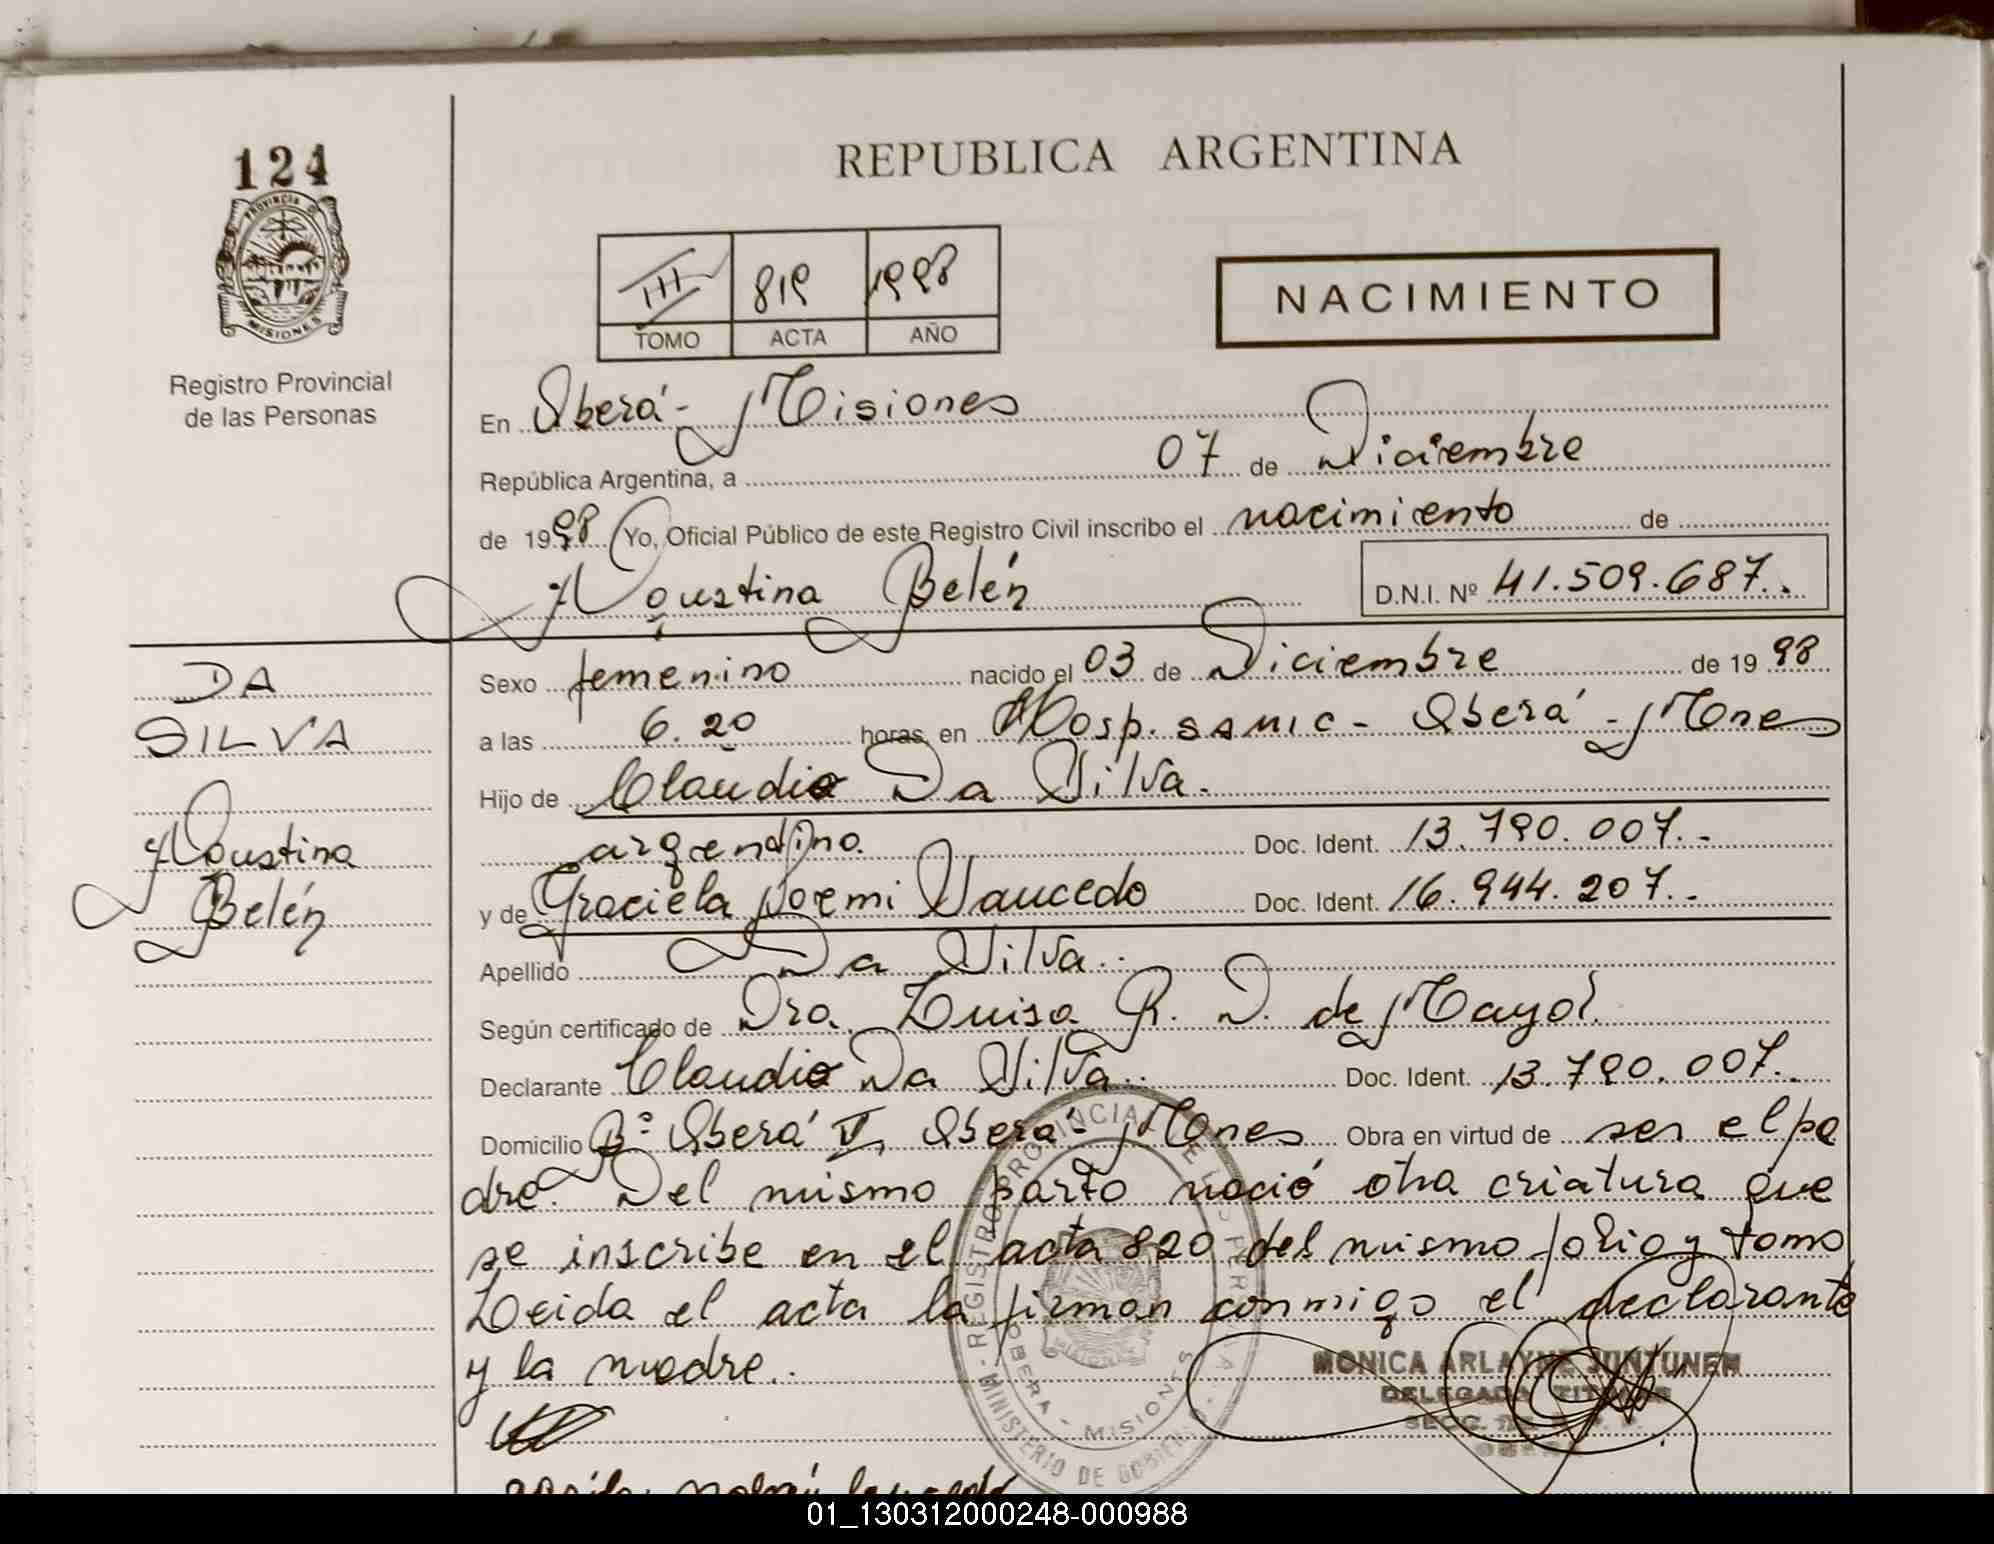 124
PROVINCIA D
MISIONES
Registro Provincial
de las Personas
REPUBLICA ARGENTINA
III 819 1998
TOMO ACTA AÑO
NACIMIENTO
En Oberá - Misiones
República Argentina, a 07 de Diciembre
de 1998 Yo, Oficial Público de este Registro Civil inscribo el nacimiento de
Agustina Belén D.N.I. Nº 41.509.687..
DA
SILVA
Agustina
Belén
Sexo femenino nacido el 03 de Diciembre de 1998
a las 6.20 horas, en Hosp. SAMIC - Oberá - Mnes
Hijo de Claudio Da Silva.
argentino. Doc. Ident. 13.790.007.-
y de Graciela Noemi Saucedo Doc. Ident. 16.944.207.-
Apellido Da Silva..
Según certificado de Dra. Luisa R. D. de Mayol.
Declarante Claudio Da Silva.. Doc. Ident. 13.790.007..
Domicilio Bº Oberá V, Oberá - Mnes Obra en virtud de ser el pa
dre. Del mismo parto nació otra criatura que
se inscribe en el acta 820 del mismo folio y tomo
Leida el acta la firman conmigo el declarante
y la madre..
REGISTRO PROVINCIAL DE LAS PERSONAS
OBERA - MISIONES
MINISTERIO DE GOBIERNO
MONICA ARLAYNE JUNTUNEN
DELEGADA TITULAR
01_130312000248-000988